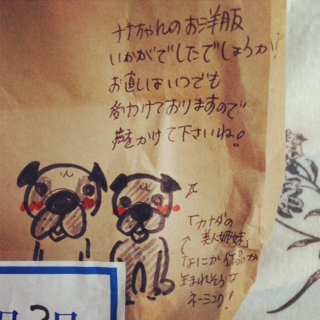 ナナちゃんのお洋服
いかがでしたでしょうか?
お直しはいつでも
受けつけておりますので
声をかけて下さいね!
「カナダの
美人姉妹」
なにか作品が
生まれそうな
ネーミング!